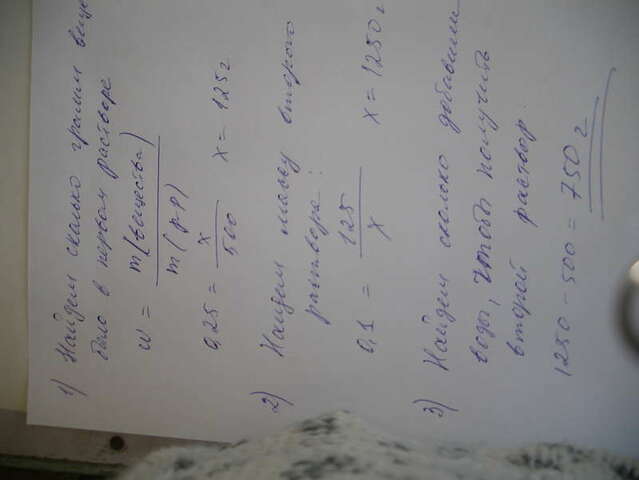 1) Найдем сколько грамм веще
было в первом растворе
w = m(вещества) / m(р-р)
0,25 = x / 500 x = 125г
2) Найдем массу второго
раствора:
0,1 = 125 / x x = 1250г
3) Найдем сколько добавили
воды, чтобы получить
второй раствор:
1250 - 500 = 750г